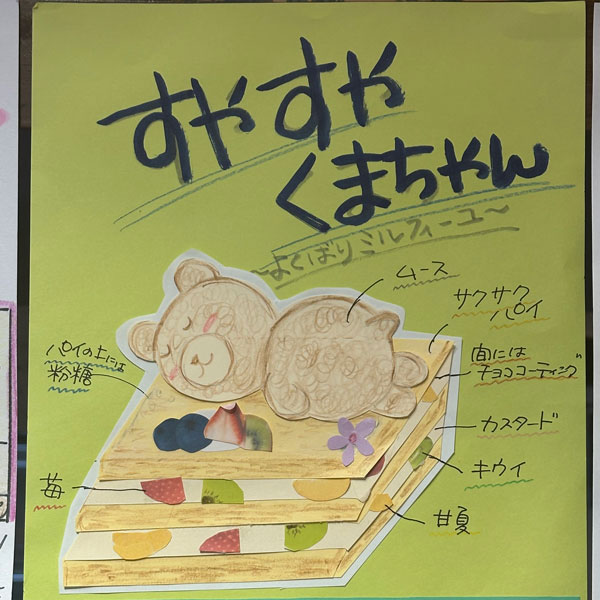 すやすや
くまちゃん
~よくばりミルフィーユ~
ムース
サクサク
パイ
間には
チョココーディング
パイの上には
粉糖
カスタード
キウイ
苺
甘夏